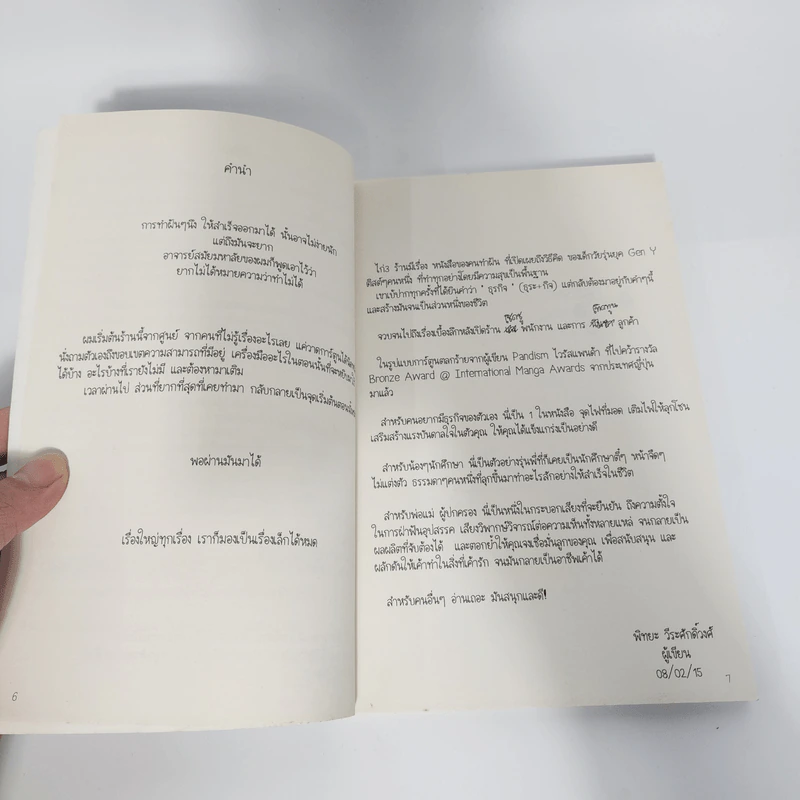 คำนำ
การทำฝันๆนึง ให้สำเร็จออกมาได้ นั้นอาจไม่ง่ายนัก
แต่ถึงมันจะยาก
อาจารย์สมัยมหาลัยของผมก็พูดเอาไว้ว่า
ยากไม่ได้หมายความว่าทำไม่ได้
ผมเริ่มต้นร้านนี้จากศูนย์ จากคนที่ไม่รู้เรื่องอะไรเลย แค่วาดการ์ตูนได้
นั่งถามตัวเองถึงขอบเขตความสามารถที่มีอยู่ เครื่องมืออะไรในตอนนั้นที่จะ
ได้บ้าง อะไรบ้างที่เรายังไม่มี และต้องหามาเติม
เวลาผ่านไป ส่วนที่ยากที่สุดที่เคยทำมา กลับกลายเป็นจุดเริ่มต้น
พอผ่านมันมาได้
เรื่องใหญ่ทุกเรื่อง เราก็มองเป็นเรื่องเล็กได้หมด
6
ไก่3 ร้านมีเรื่อง หนังสือของคนทำฝัน ที่เปิดเผยถึงวิธีคิด ของเด็กวัยรุ่นยุค Gen Y
ติสต์ๆคนหนึ่ง ที่ทำทุกอย่างโดยมีความสุขเป็นพื้นฐาน
เขาเบ้ปากทุกครั้งที่ได้ยินคำว่า " ธุรกิจ " (ธุระ+กิจ) แต่กลับต้องมาอยู่กับคำๆนี้
และสร้างมันจนเป็นส่วนหนึ่งของชีวิต
จวบจนไปถึงเรื่องเบื้องลึกหลังเปิดร้าน พนักงาน และการ ลูกค้า
ในรูปแบบการ์ตูนตลกร้ายจากผู้เขียน Pandism ไวรัสแพนด้า ที่ไปคว้ารางวัล
Bronze Award @ International Manga Awards จากประเทศญี่ปุ่น
มาแล้ว
สำหรับคนอยากมีธุรกิจของตัวเอง นี่เป็น 1 ในหนังสือ จุดไฟที่มอด เติมไฟให้ลุกโชน
เสริมสร้างแรงบันดาลใจในตัวคุณ ให้คุณได้แข็งแกร่งเป็นอย่างดี
สำหรับน้องๆนักศึกษา นี่เป็นตัวอย่างรุ่นพี่ที่ก็เคยเป็นนักศึกษาตี๋ๆ หน้าจืดๆ
ไม่แต่งตัว ธรรมดาๆคนหนึ่งที่ลุกขึ้นมาทำอะไรสักอย่างให้สำเร็จในชีวิต
สำหรับพ่อแม่ ผู้ปกครอง นี่เป็นหนึ่งในกระบอกเสียงที่จะยืนยัน ถึงความตั้งใจ
ในการฝ่าฟันอุปสรรค เสียงวิพากษ์วิจารณ์ต่อความเห็นทั้งหลายแหล่ จนกลายเป็น
ผลผลิตที่จับต้องได้ และตอกย้ำให้คุณจงเชื่อมั่นลูกของคุณ เพื่อสนับสนุน และ
ผลักดันให้เค้าทำในสิ่งที่เค้ารัก จนมันกลายเป็นอาชีพเค้าได้
สำหรับคนอื่นๆ อ่านเถอะ มันสนุกและดี!
พิทยะ วีระศักดิ์วงศ์
ผู้เขียน
08/02/15
7